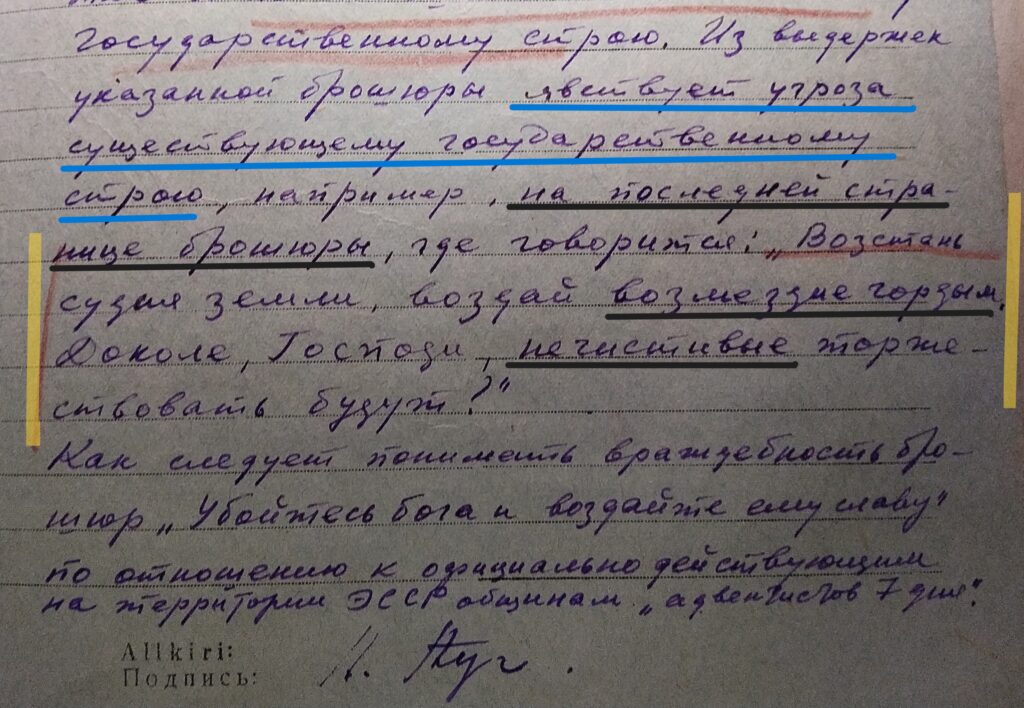 государственному строю. Из выдержек
указанной брошюры явствует угроза
существующему государственному
строю, например, на последней стра-
нице брошюры, где говорится: „Возстань
судия земли, воздай возмездие гордым.
Доколе, Господи, нечистивые торже-
ствовать будут?"
Как следует понимать враждебность бро-
шюр „Убойтесь бога и воздайте ему славу"
по отношению к официально действующим
на территории ЭССР общинам „адвентистов 7 дня".
Allkiri:
Подпись: